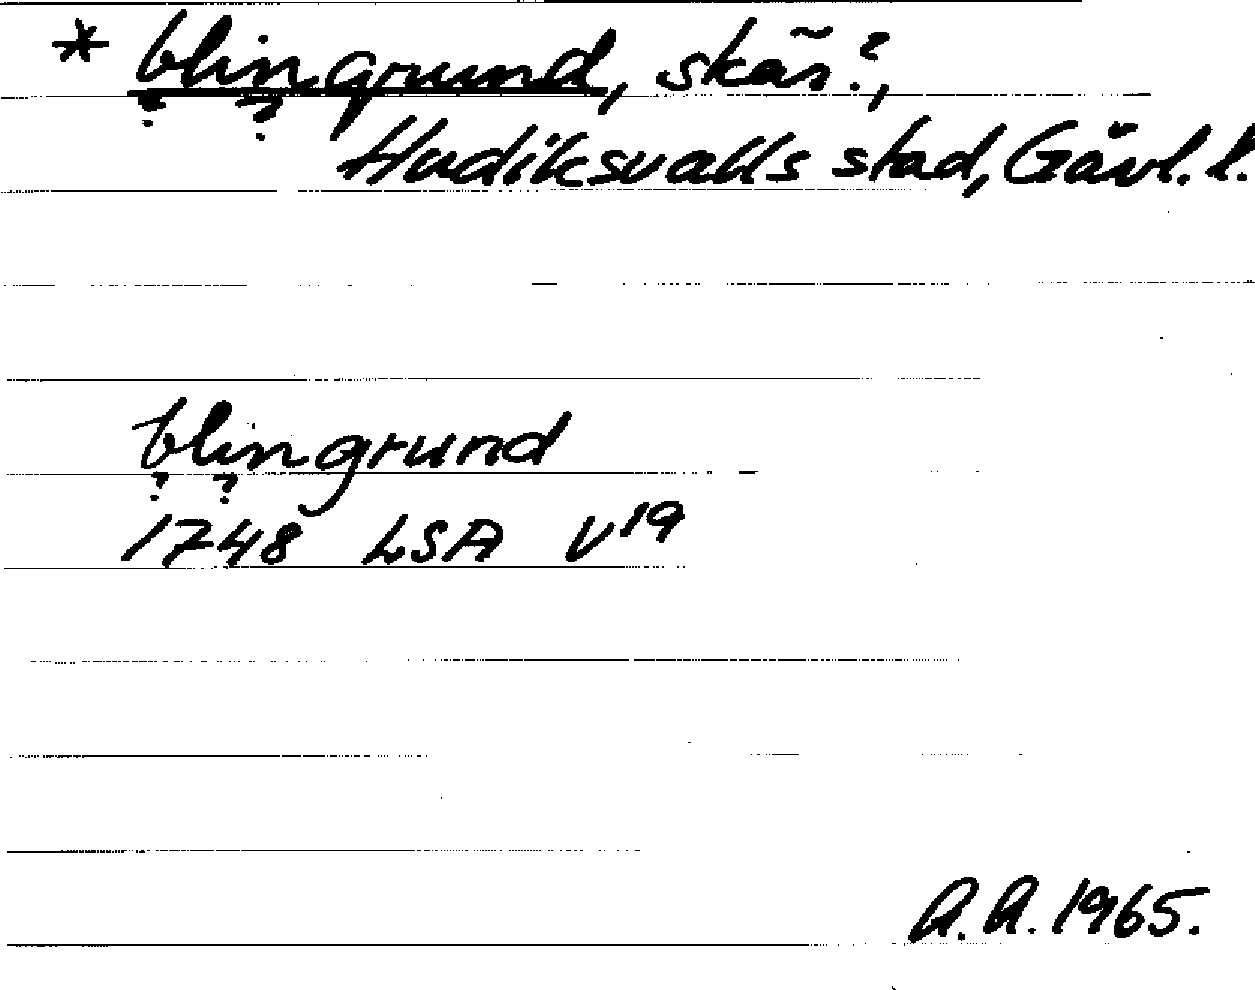 * blingrund, skär?,
? ?
Hudiksvalls stad, Gävl. l.
blingrund
? ?
1748 LSA V19
A.A. 1965.